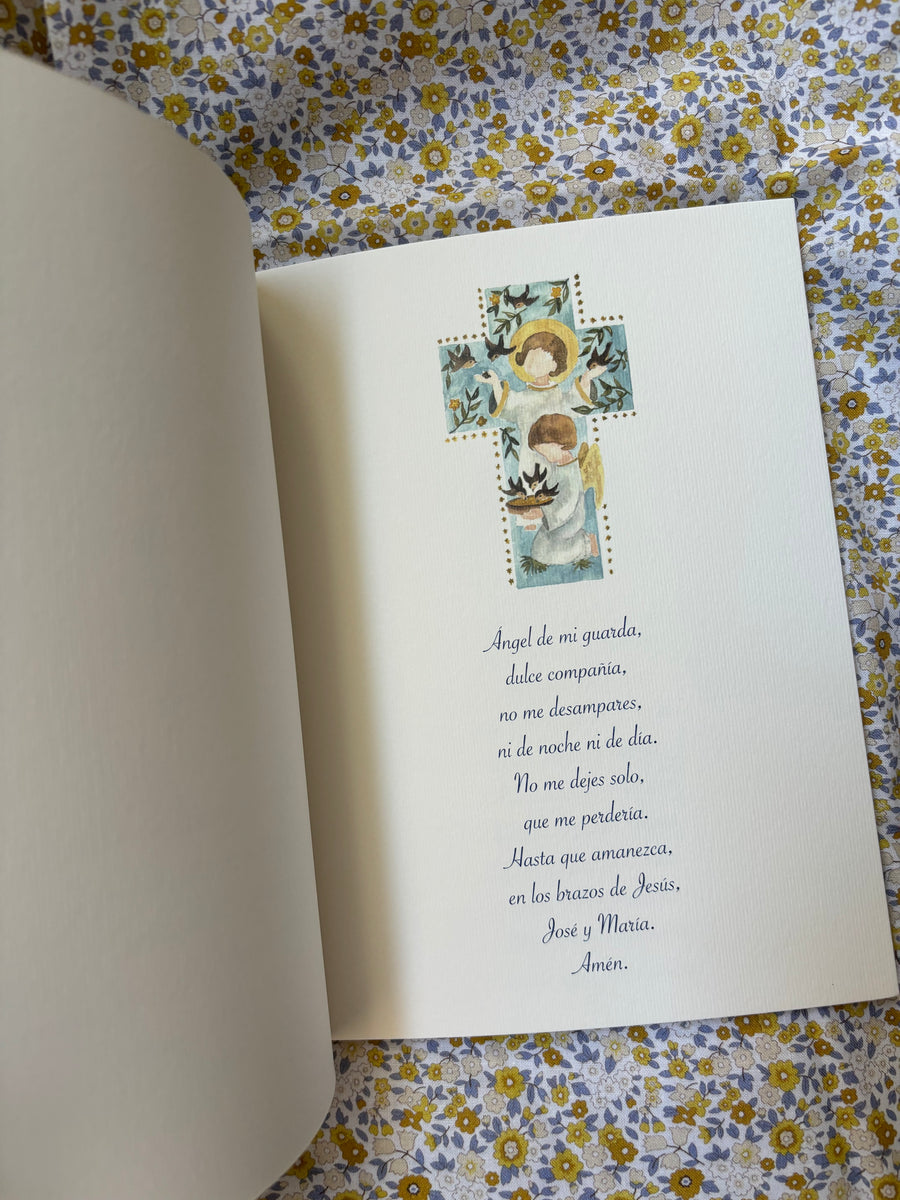 Ángel de mi guarda,
dulce compañía,
no me desampares,
ni de noche ni de día.
No me dejes solo,
que me perdería.
Hasta que amanezca,
en los brazos de Jesús,
José y María.
Amén.